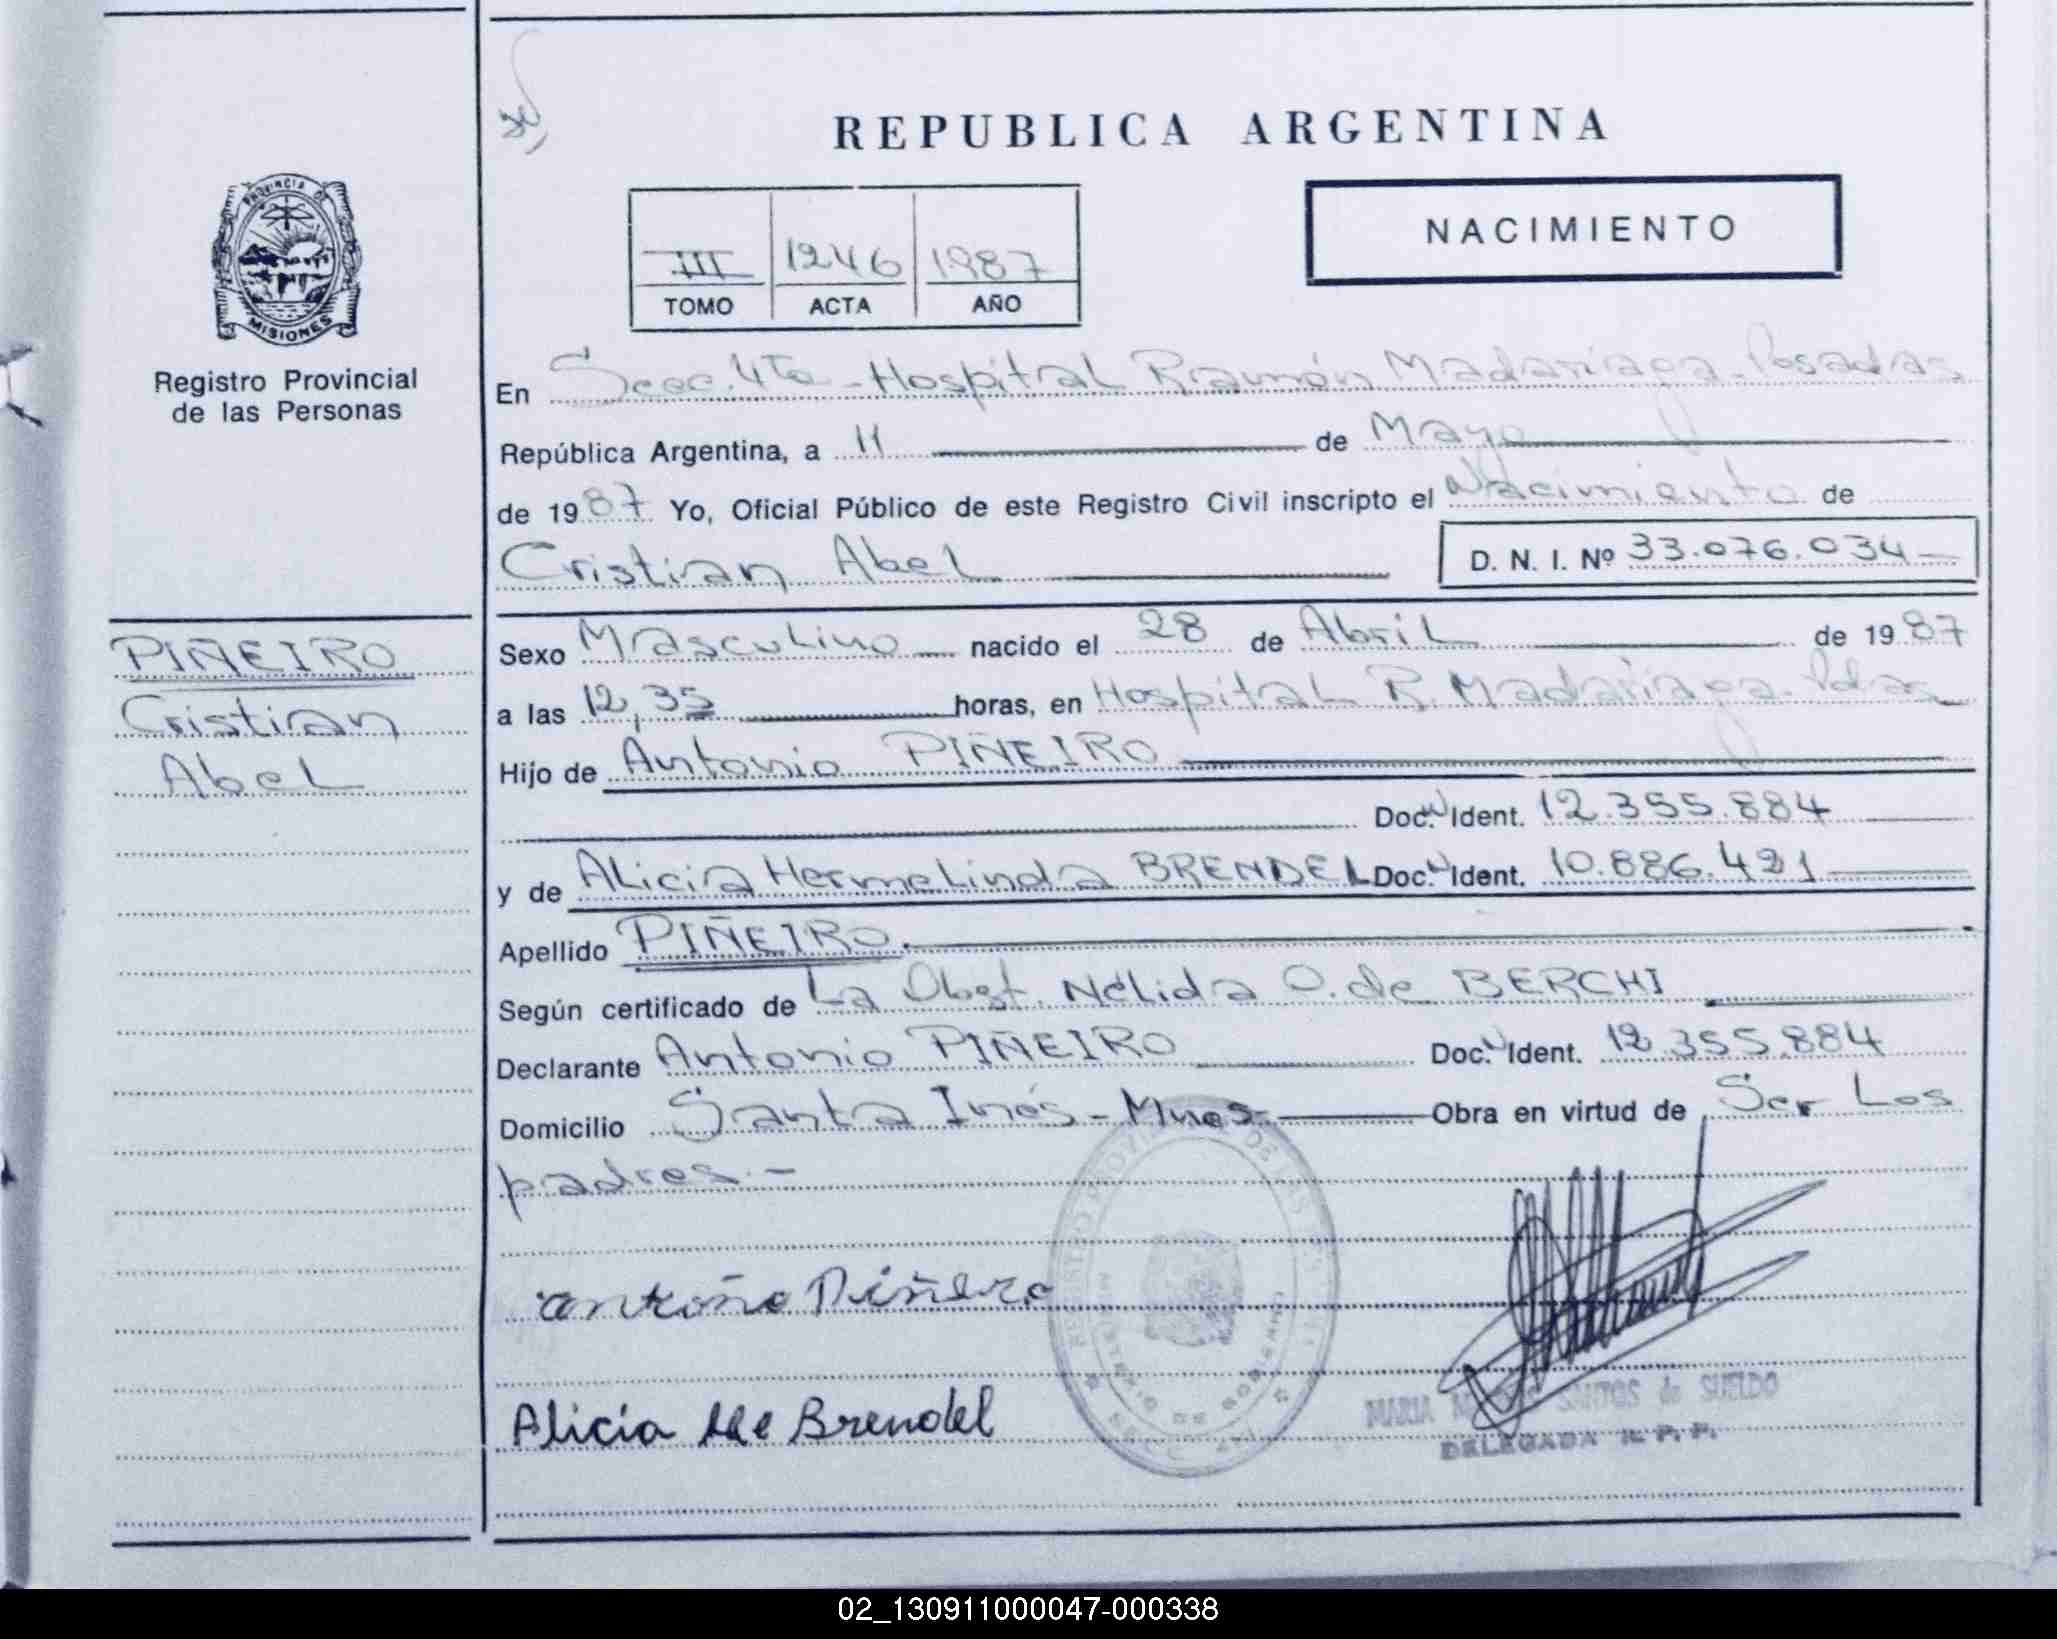 REPUBLICA ARGENTINA
NACIMIENTO
III 1246 1987
TOMO ACTA AÑO
PROVINCIA DE
MISIONES
Registro Provincial
de las Personas
En Secc. 4Ta - Hospital Ramón Madariaga - Posadas
República Argentina, a 11 de Mayo
de 1987 Yo, Oficial Público de este Registro Civil inscripto el Nacimiento de
Cristian Abel D. N. I. Nº 33.076.034
PIÑEIRO
Cristian
Abel
Sexo Masculino nacido el 28 de Abril de 1987
a las 12,35 horas, en Hospital R. Madariaga - Pdas
Hijo de Antonio PIÑEIRO
Doc. Ident. 12.355.884
y de Alicia Hermelinda BRENDEL Doc. Ident. 10.886.421
Apellido PIÑEIRO.
Según certificado de La Obst. Nélida O. de BERCHI
Declarante Antonio PIÑEIRO Doc. Ident. 12.355.884
Domicilio Santa Inés - Mnes - Obra en virtud de Ser Los
padres. -
antoño Piñero
Alicia He Brendel
REGISTRO PROVINCIAL DE LAS
MINISTERIO DE GOBIERNO
MARIA SANTOS de SUELDO
DELEGADA R. P. P.
02_130911000047-000338